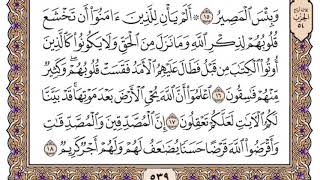 وَبِئْسَ ٱلْمَصِيرُ ١٥ أَلَمْ يَأْنِ لِلَّذِينَ ءَامَنُوٓا۟ أَن تَخْشَعَ
قُلُوبُهُمْ لِذِكْرِ ٱللَّهِ وَمَا نَزَلَ مِنَ ٱلْحَقِّ وَلَا يَكُونُوا۟ كَٱلَّذِينَ
أُوتُوا۟ ٱلْكِتَٰبَ مِن قَبْلُ فَطَالَ عَلَيْهِمُ ٱلْأَمَدُ فَقَسَتْ قُلُوبُهُمْ ۖ وَكَثِيرٌ
مِّنْهُمْ فَٰسِقُونَ ١٦ ٱعْلَمُوٓا۟ أَنَّ ٱللَّهَ يُحْىِ ٱلْأَرْضَ بَعْدَ مَوْتِهَا ۚ قَدْ بَيَّنَّا
لَكُمُ ٱلْـَٔايَٰتِ لَعَلَّكُمْ تَعْقِلُونَ ١٧ إِنَّ ٱلْمُصَّدِّقِينَ وَٱلْمُصَّدِّقَٰتِ
وَأَقْرَضُوا۟ ٱللَّهَ قَرْضًا حَسَنًا يُضَٰعَفُ لَهُمْ وَلَهُمْ أَجْرٌ كَرِيمٌ ١٨
٥٣٩